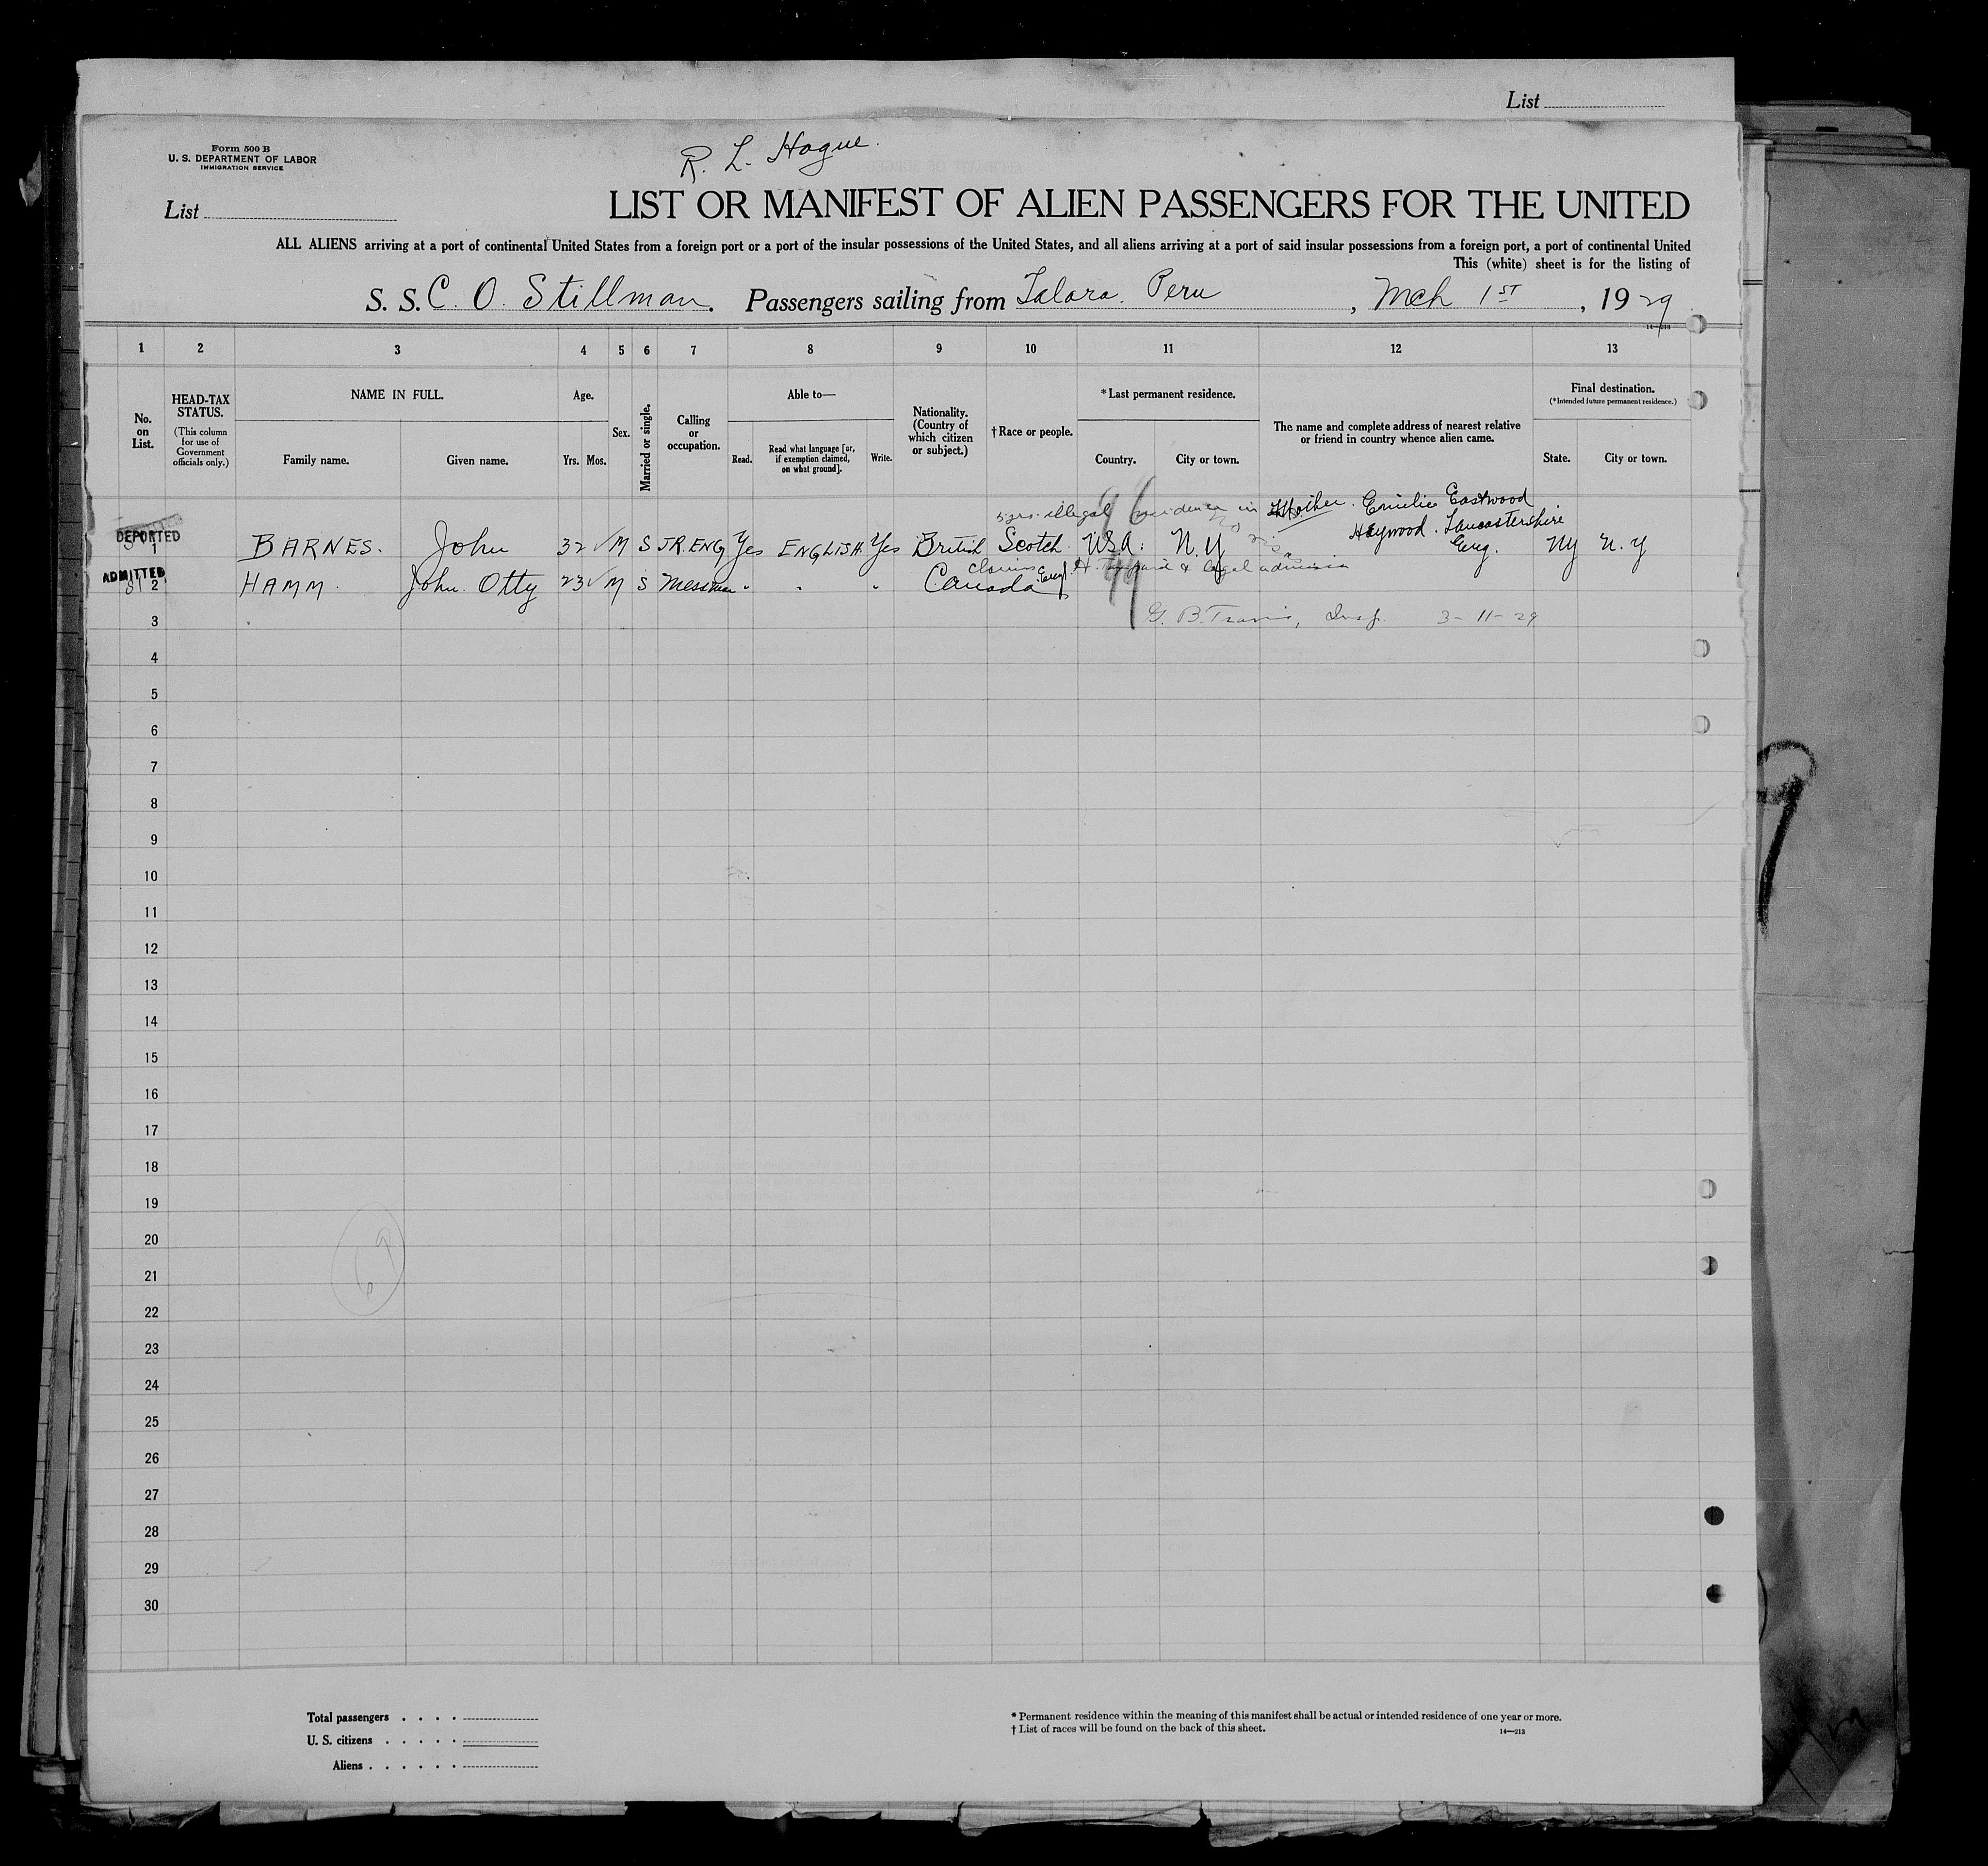 List
Form 500 B
U. S. DEPARTMENT OF LABOR
IMMIGRATION SERVICE
R. L. Hague.
List
LIST OR MANIFEST OF ALIEN PASSENGERS FOR THE UNITED
ALL ALIENS arriving at a port of continental United States from a foreign port or a port of the insular possessions of the United States, and all aliens arriving at a port of said insular possessions from a foreign port, a port of continental United
This (white) sheet is for the listing of
S. S. C. O. Stillman. Passengers sailing from Talara. Peru, Mch 1ST, 1929
14—213
1 2 3 4 5 6 7 8 9 10 11 12 13
No. on List.
HEAD-TAX STATUS.
(This column for use of Government officials only.)
NAME IN FULL.
Family name. Given name.
Age.
Yrs. Mos.
Sex.
Married or single.
Calling or occupation.
Able to—
Read. Read what language [or, if exemption claimed, on what ground]. Write.
Nationality. (Country of which citizen or subject.)
† Race or people.
* Last permanent residence.
Country. City or town.
The name and complete address of nearest relative or friend in country whence alien came.
Final destination.
(*Intended future permanent residence.)
State. City or town.
5 yrs. illegal residence in
Mother. Emilie Eastwood
Heywood. Lancastershire
Eng.
DEPORTED
1 BARNES. John 32 M S JR. ENG Yes ENGLISH Yes British Scotch U.S.A. N.Y NY N.Y
claims & legal admission
ADMITTED
2 HAMM. John Otty 23 M S Messman " " " Canada Eng.
3 G. B. Travis, Insp. 3-11-29
4
5
6
7
8
9
10
11
12
13
14
15
16
17
18
19
20
21
22
23
24
25
26
27
28
29
30
Total passengers
U. S. citizens
Aliens
* Permanent residence within the meaning of this manifest shall be actual or intended residence of one year or more.
† List of races will be found on the back of this sheet.
14—213